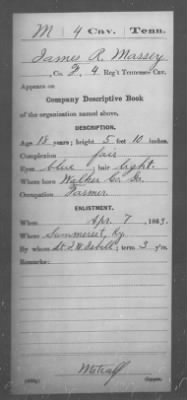 M | 4 Cav. | Tenn.
James R. Massey
, Co. F, 4 Reg't Tennessee Cav.
Appears on
Company Descriptive Book
of the organization named above.
DESCRIPTION.
Age 18 years; height 5 feet 10 inches.
Complexion fair
Eyes blue; hair light.
Where born Walker Co. Ga.
Occupation Farmer
ENLISTMENT.
When Apr. 7, 1863.
Where Sommerset, Ky.
By whom Lt. J. W. Isbell; term 3 y'rs.
Remarks:
Metcalf
Copyist.